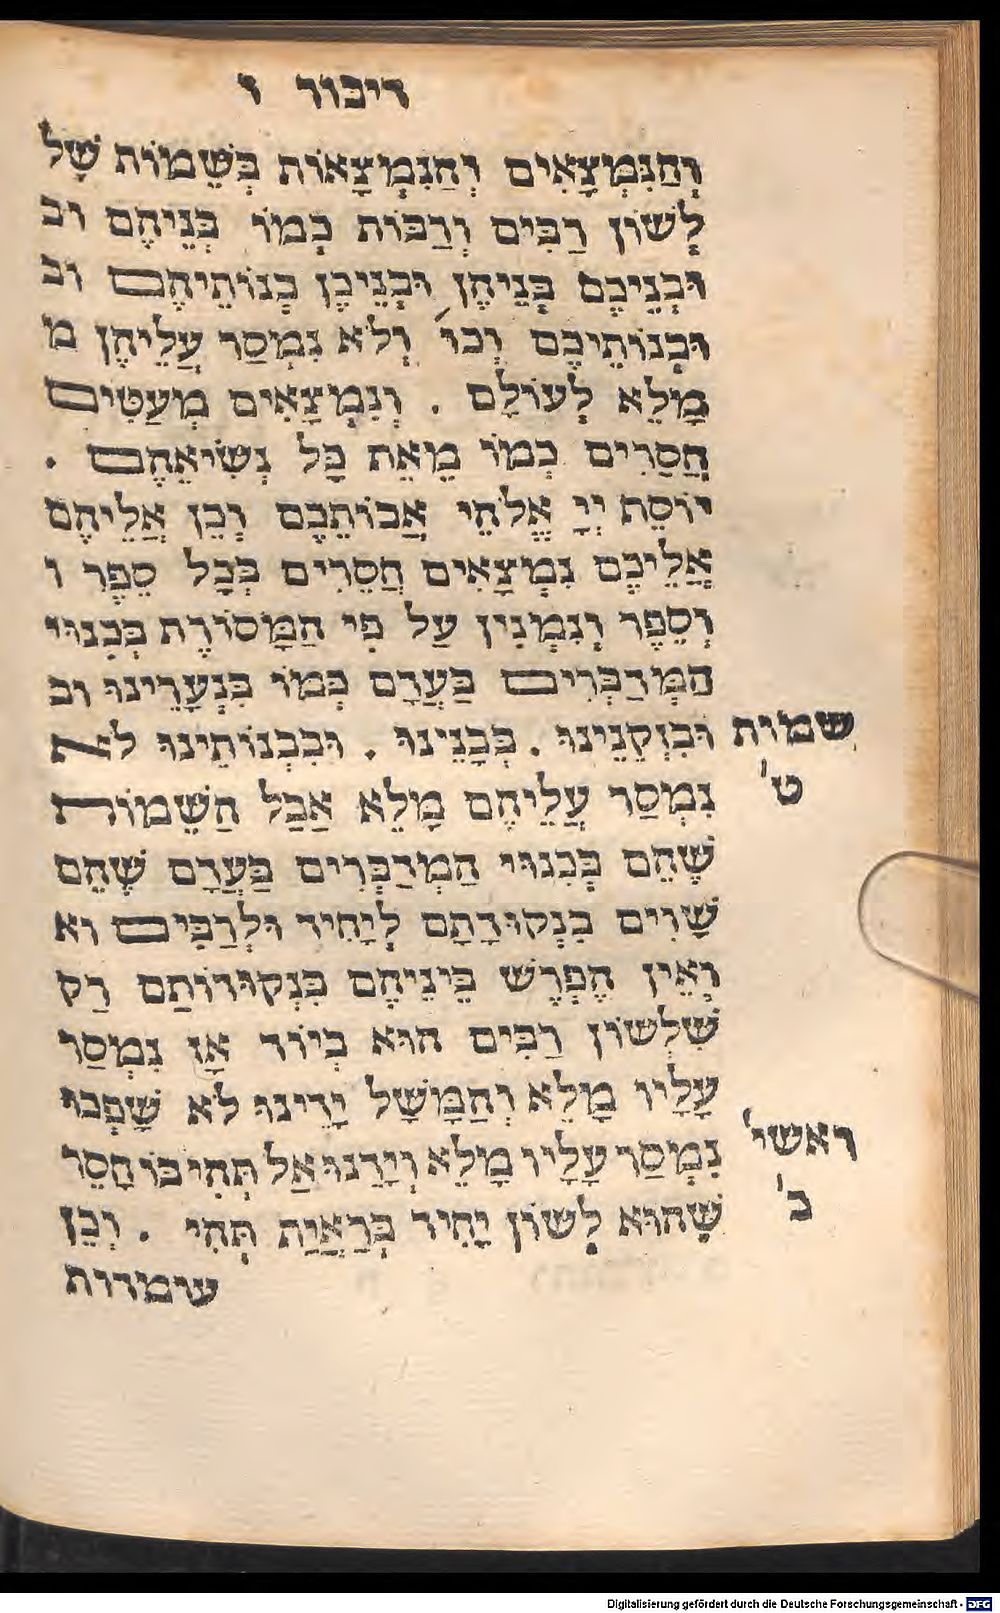 דיבור ו
וְהַנִּמְצָאִים וְהַנִּמְצָאוֹת בְּשֵׁמוֹת שֶׁל
לְשׁוֹן רַבִּים וְרַבּוֹת כְּמוֹ בְּנֵיהֶם וב
וּבְנֵיכֶם בְּנֵיהֶן וּבְנֵיכֶן בְּנוֹתֵיהֶם וב
וּבְנוֹתֵיכֶם וְכוּ׳ וְלֹא נִמְסַר עֲלֵיהֶן מ
מָלֵא לְעוֹלָם . וְנִמְצָאִים מְעַטִּים
חֲסֵרִים כְּמוֹ מֵאֵת כָּל נְשִׂיאֵהֶם .
יוֹסֵף יְיָ אֱלֹהֵי אֲבוֹתֵכֶם וְכֵן אֲלֵיהֶם
אֲלֵיכֶם נִמְצָאִים חֲסֵרִים בְּכָל סֵפֶר ו
וְסֵפֶר וְנִמְנִין עַל פִּי הַמָּסוֹרֶת בְּכִנּוּי
הַמְּדַבְּרִים בַּעֲדָם כְּמוֹ בִּנְעָרֵינוּ וב
שמות וּבִזְקֵנֵינוּ . בְּבָנֵינוּ . וּבִבְנוֹתֵינוּ לא
ט׳ נִמְסַר עֲלֵיהֶם מָלֵא אֲבָל הַשֵּׁמוֹת
שֶׁהֵם בְּכִנּוּי הַמְּדַבְּרִים בַּעֲדָם שֶׁהֵם
שָׁוִים בִּנְקוּדָתָם לְיָחִיד וּלְרַבִּים וא
וְאֵין הֶפְרֵשׁ בֵּינֵיהֶם בִּנְקוּדוֹתָם רַק
שֶׁלְּשׁוֹן רַבִּים הוּא בְיוֹד אָז נִמְסַר
עָלָיו מָלֵא וְהַמָּשָׁל יָדֵינוּ לֹא שָׁפְכוּ
ראשי׳ נִמְסַר עָלָיו מָלֵא וְיָדֵנוּ אַל תְּהִי בוֹ חָסֵר
ב׳ שֶׁהוּא לְשׁוֹן יָחִיד בִּרְאָיַת תְּהִי . וְכֵן
עומדות
Digitalisierung gefördert durch die Deutsche Forschungsgemeinschaft - DFG